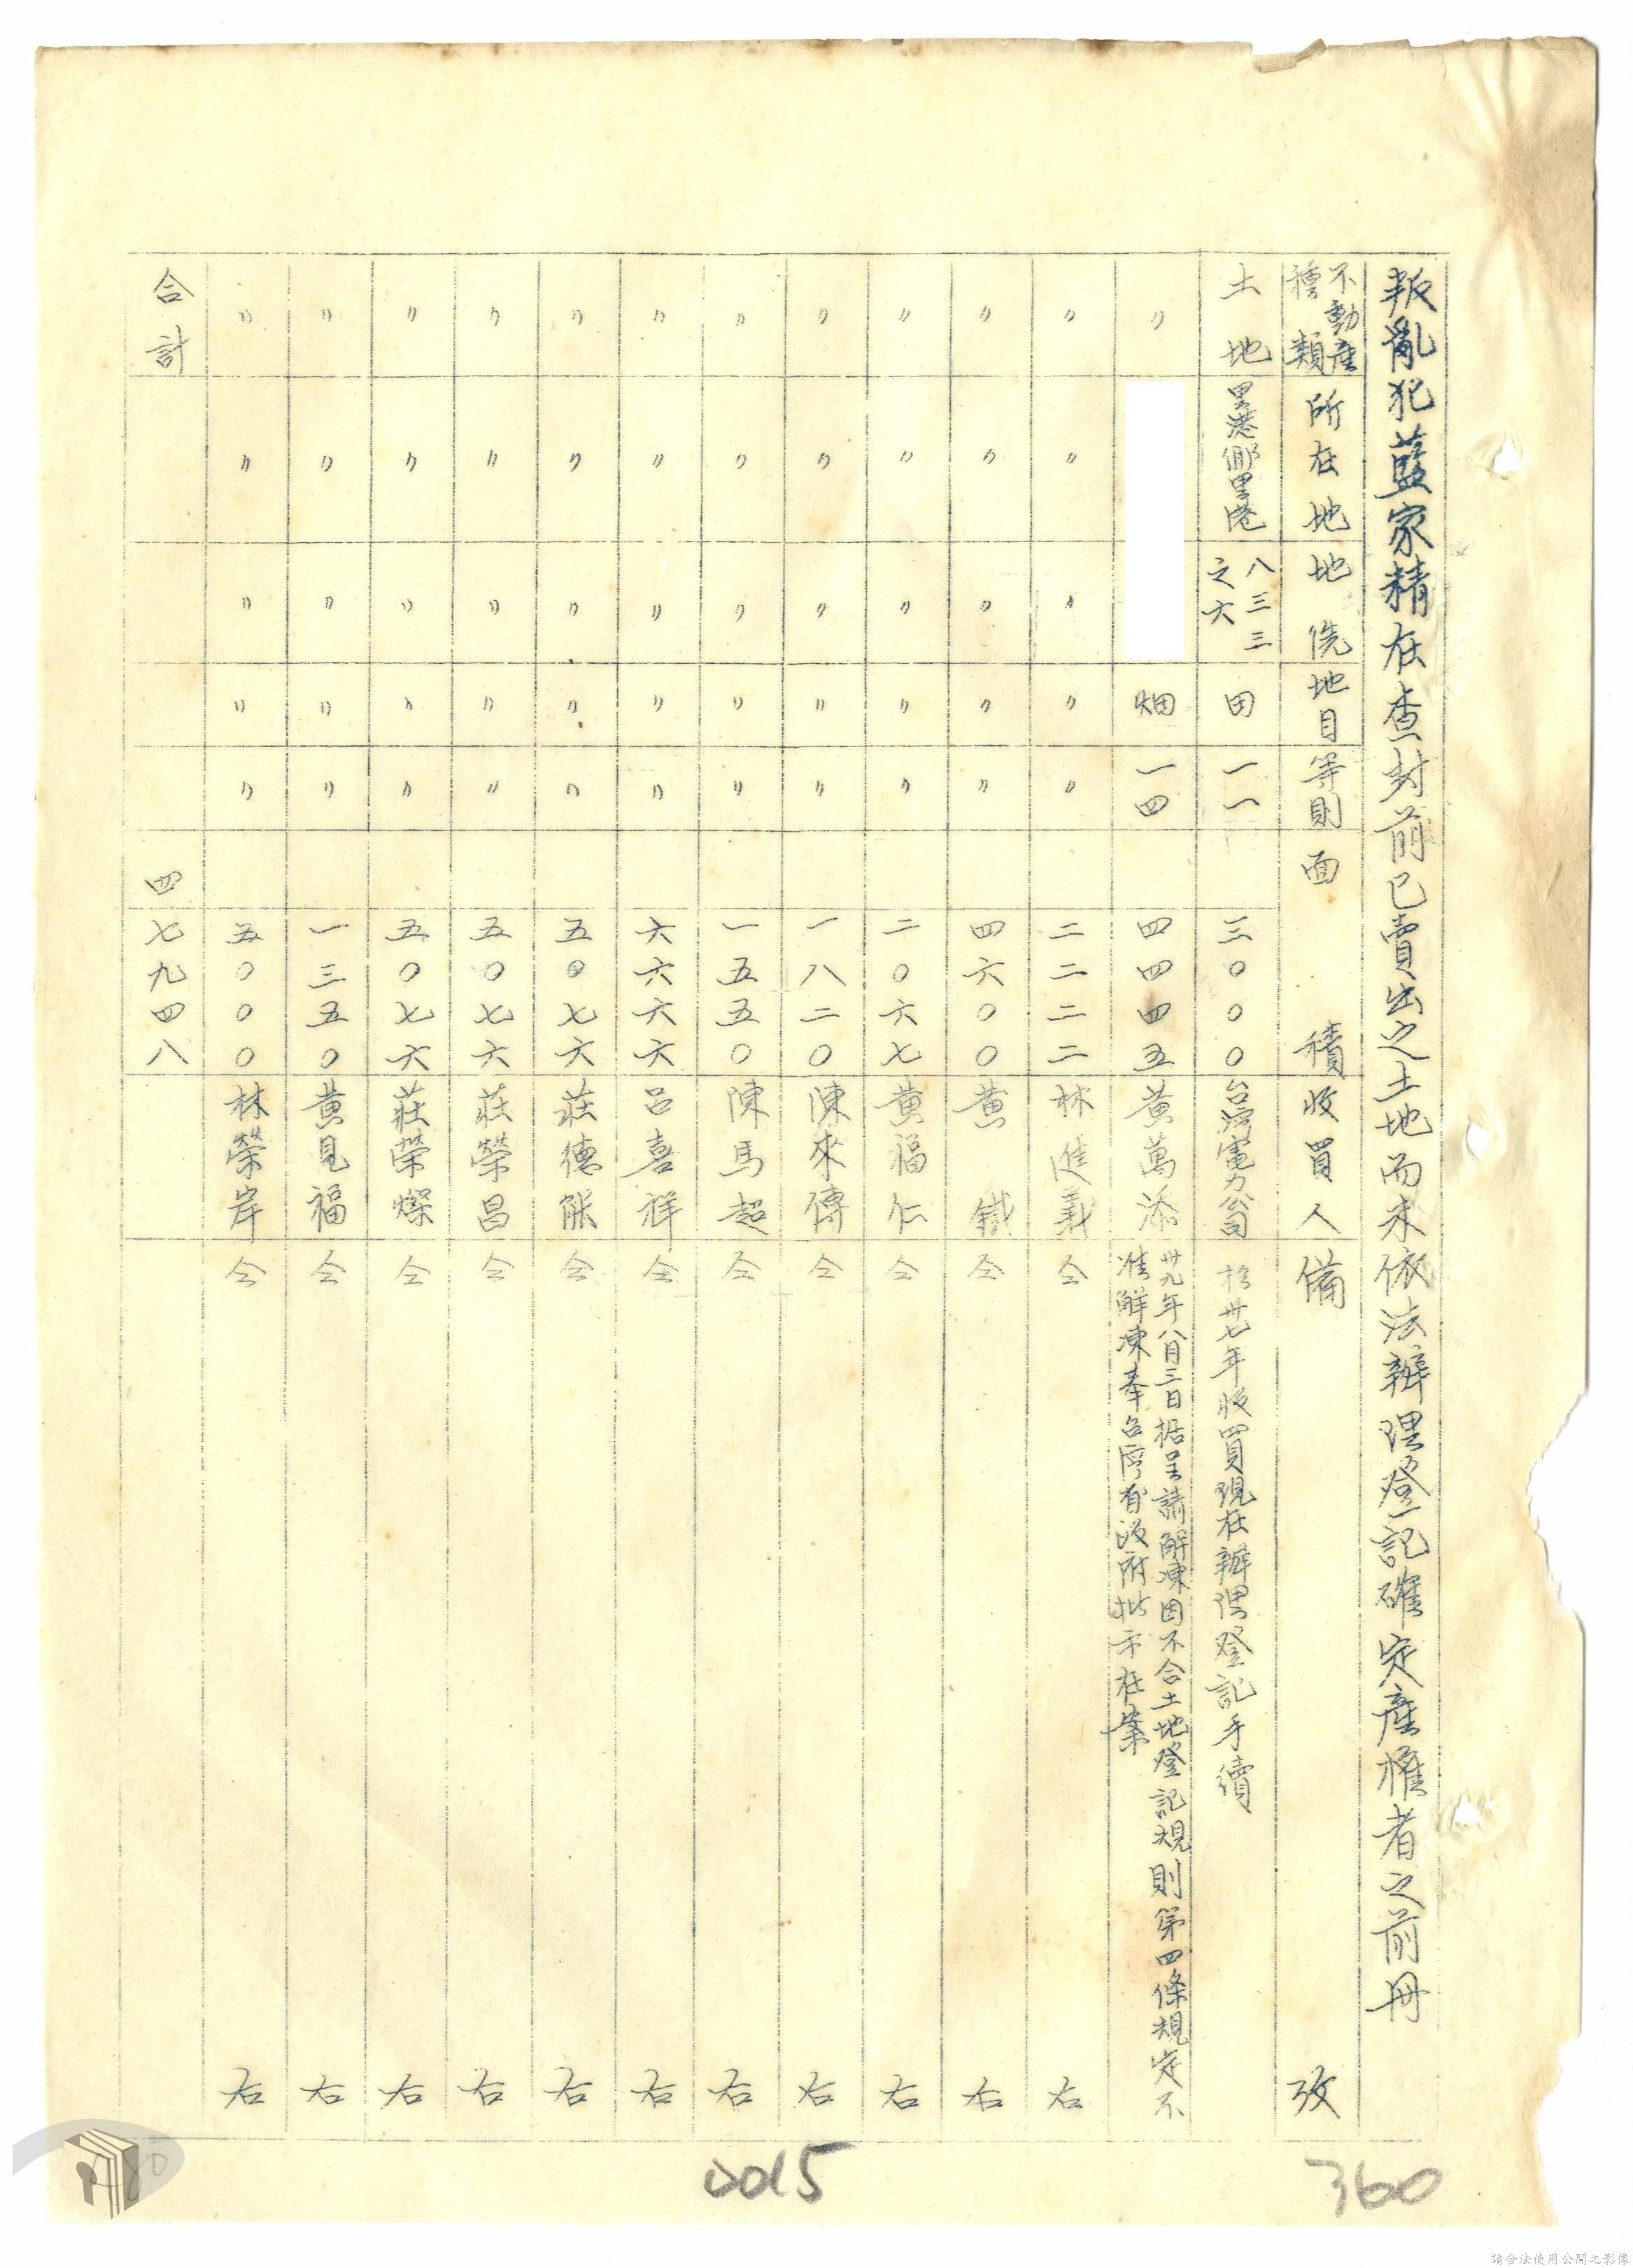 叛亂犯藍家精在查封前已賣出之土地而未依法辦理登記確定產權者之前冊
不動產種類 所在地 地 地目 等則 面積 收買人 備攷
土地 里港鄉里港 八三三之六 田 一一 三〇〇〇 台灣電力公司 於卅七年收買現在辦理登記手續
〃 畑 一四 四四四五 黃萬添 卅九年八月三日据呈請解凍因不合土地登記規則第四條規定不准解凍奉台灣省政府批示在案
〃 〃 〃 〃 〃 二二二二 林進義 仝右
〃 〃 〃 〃 〃 四六〇〇 黃鐵 仝右
〃 〃 〃 〃 〃 二〇六七 黃福仁 仝右
〃 〃 〃 〃 〃 一八二〇 陳來傳 仝右
〃 〃 〃 〃 〃 一五五〇 陳馬超 仝右
〃 〃 〃 〃 〃 六六六六 呂喜祥 仝右
〃 〃 〃 〃 〃 五〇七六 莊德能 仝右
〃 〃 〃 〃 〃 五〇七六 莊榮昌 仝右
〃 〃 〃 〃 〃 五〇七六 莊荣燦 仝右
〃 〃 〃 〃 〃 一三五〇 黃見福 仝右
〃 〃 〃 〃 〃 五〇〇〇 林榮岸 仝右
合計 四七九四八
0015
360
請合法使用公開之影像